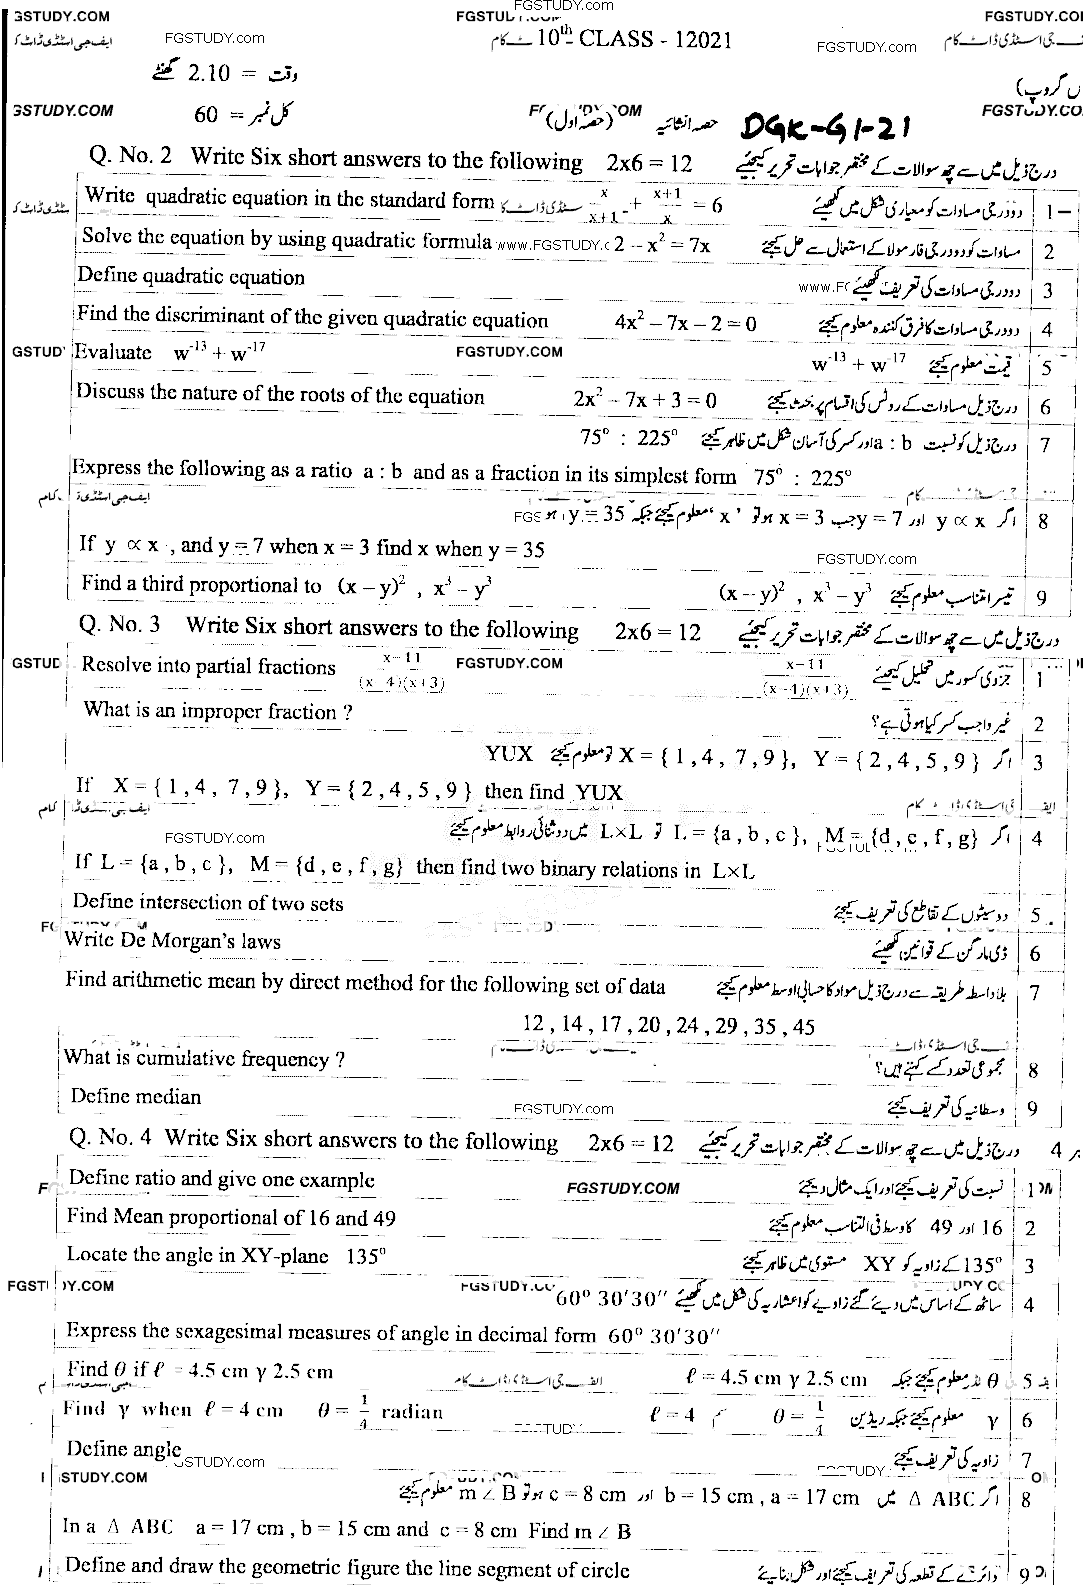 FGSTUDY.com
GSTUDY.COM FGSTUDY.COM FGSTUDY.CO
ایف جی اسٹڈی ڈاٹ ک FGSTUDY.com ٹ کام 10th CLASS - 12021 FGSTUDY.com ف جی اسٹڈی ڈاٹ کام
وقت = 2.10 گھنٹے
ں گروپ)
GSTUDY.COM کل نمبر = 60 (حصہ اول) حصہ انشائیہ DGK-G1-21 FGSTUDY.CO
Q. No. 2 Write Six short answers to the following 2x6 = 12 درج ذیل میں سے چھ سوالات کے مختصر جوابات تحریر کیجئیے
Write quadratic equation in the standard form x/(x+1) + (x+1)/x = 6 دو درجی مساوات کو معیاری شکل میں لکھیئے 1
Solve the equation by using quadratic formula www.FGSTUDY.c 2 - x² = 7x مساوات کو دو درجی فارمولا کے استعمال سے حل کیجئے 2
Define quadratic equation www.FG دو درجی مساوات کی تعریف لکھیئے 3
Find the discriminant of the given quadratic equation 4x² - 7x - 2 = 0 دو درجی مساوات کا فرق کنندہ معلوم کیجئے 4
GSTUD Evaluate w⁻¹³ + w⁻¹⁷ FGSTUDY.COM w⁻¹³ + w⁻¹⁷ قیمت معلوم کیجئے 5
Discuss the nature of the roots of the equation 2x² - 7x + 3 = 0 درج ذیل مساوات کے روٹس کی اقسام پر بحث کیجئے 6
75° : 225° درج ذیل کو نسبت a : b اور کسر کی آسان شکل میں ظاہر کیجئے 7
Express the following as a ratio a : b and as a fraction in its simplest form 75° : 225°
ایف جی اسٹڈی ڈ کام
اگر y ∝ x اور y = 7 جب x = 3 ہو تو 'x' معلوم کیجئے جبکہ y = 35 ہو 8
If y ∝ x , and y = 7 when x = 3 find x when y = 35
FGSTUDY.com
Find a third proportional to (x – y)² , x³ – y³ (x – y)² , x³ – y³ تیسرا متناسب معلوم کیجئے 9
Q. No. 3 Write Six short answers to the following 2x6 = 12 درج ذیل میں سے چھ سوالات کے مختصر جوابات تحریر کیجئیے
GSTUD Resolve into partial fractions (x-11)/((x-4)(x+3)) FGSTUDY.COM (x-11)/((x-4)(x+3)) جزوی کسور میں تحلیل کیجیئے 1
What is an improper fraction ? غیر واجب کسر کیا ہوتی ہے؟ 2
اگر X = { 1 , 4 , 7 , 9 }, Y = { 2 , 4 , 5 , 9 } تو معلوم کیجئے YUX 3
If X = { 1 , 4 , 7 , 9 }, Y = { 2 , 4 , 5 , 9 } then find YUX
FGSTUDY.com
اگر L = {a , b , c }, M = {d , e , f , g} تو L×L میں دو ثنائی روابط معلوم کیجئے 4
If L = {a , b , c }, M = {d , e , f , g} then find two binary relations in L×L
Define intersection of two sets دو سیٹوں کے تقاطع کی تعریف کیجئے 5
Write De Morgan's laws ڈی مارگن کے قوانین لکھیئے 6
Find arithmetic mean by direct method for the following set of data بلاواسطہ طریقہ سے درج ذیل مواد کا حسابی اوسط معلوم کیجئے 7
12 , 14 , 17 , 20 , 24 , 29 , 35 , 45
What is cumulative frequency ? مجموعی تعدد کسے کہتے ہیں؟ 8
Define median FGSTUDY.com وسطانیہ کی تعریف کیجئے 9
Q. No. 4 Write Six short answers to the following 2x6 = 12 درج ذیل میں سے چھ سوالات کے مختصر جوابات تحریر کیجئیے 4
Define ratio and give one example FGSTUDY.COM نسبت کی تعریف کیجئے اور ایک مثال دیجئے 1
Find Mean proportional of 16 and 49 16 اور 49 کا وسط فی التناسب معلوم کیجئے 2
Locate the angle in XY-plane 135° 135° کے زاویہ کو XY مستوی میں ظاہر کیجئے 3
ساٹھ کے اساس میں دیئے گئے زاویے کو اعشاریہ کی شکل میں لکھیئے 60° 30′30″ 4
Express the sexagesimal measures of angle in decimal form 60° 30′30″
Find θ if ℓ = 4.5 cm γ 2.5 cm ℓ = 4.5 cm γ 2.5 cm θ معلوم کیجئے جبکہ 5
Find γ when ℓ = 4 cm θ = 1/4 radian ℓ = 4 θ = 1/4 γ معلوم کیجئے جبکہ ریڈین 6
Define angle زاویہ کی تعریف کیجئے 7
GSTUDY.com
STUDY.COM
اگر Δ ABC میں a = 17 cm , b = 15 cm اور c = 8 cm ہو تو m ∠ B معلوم کیجئے 8
In a Δ ABC a = 17 cm , b = 15 cm and c = 8 cm Find m ∠ B
Define and draw the geometric figure the line segment of circle دائرے کے قطعہ کی تعریف کیجئے اور شکل بنائیے 9